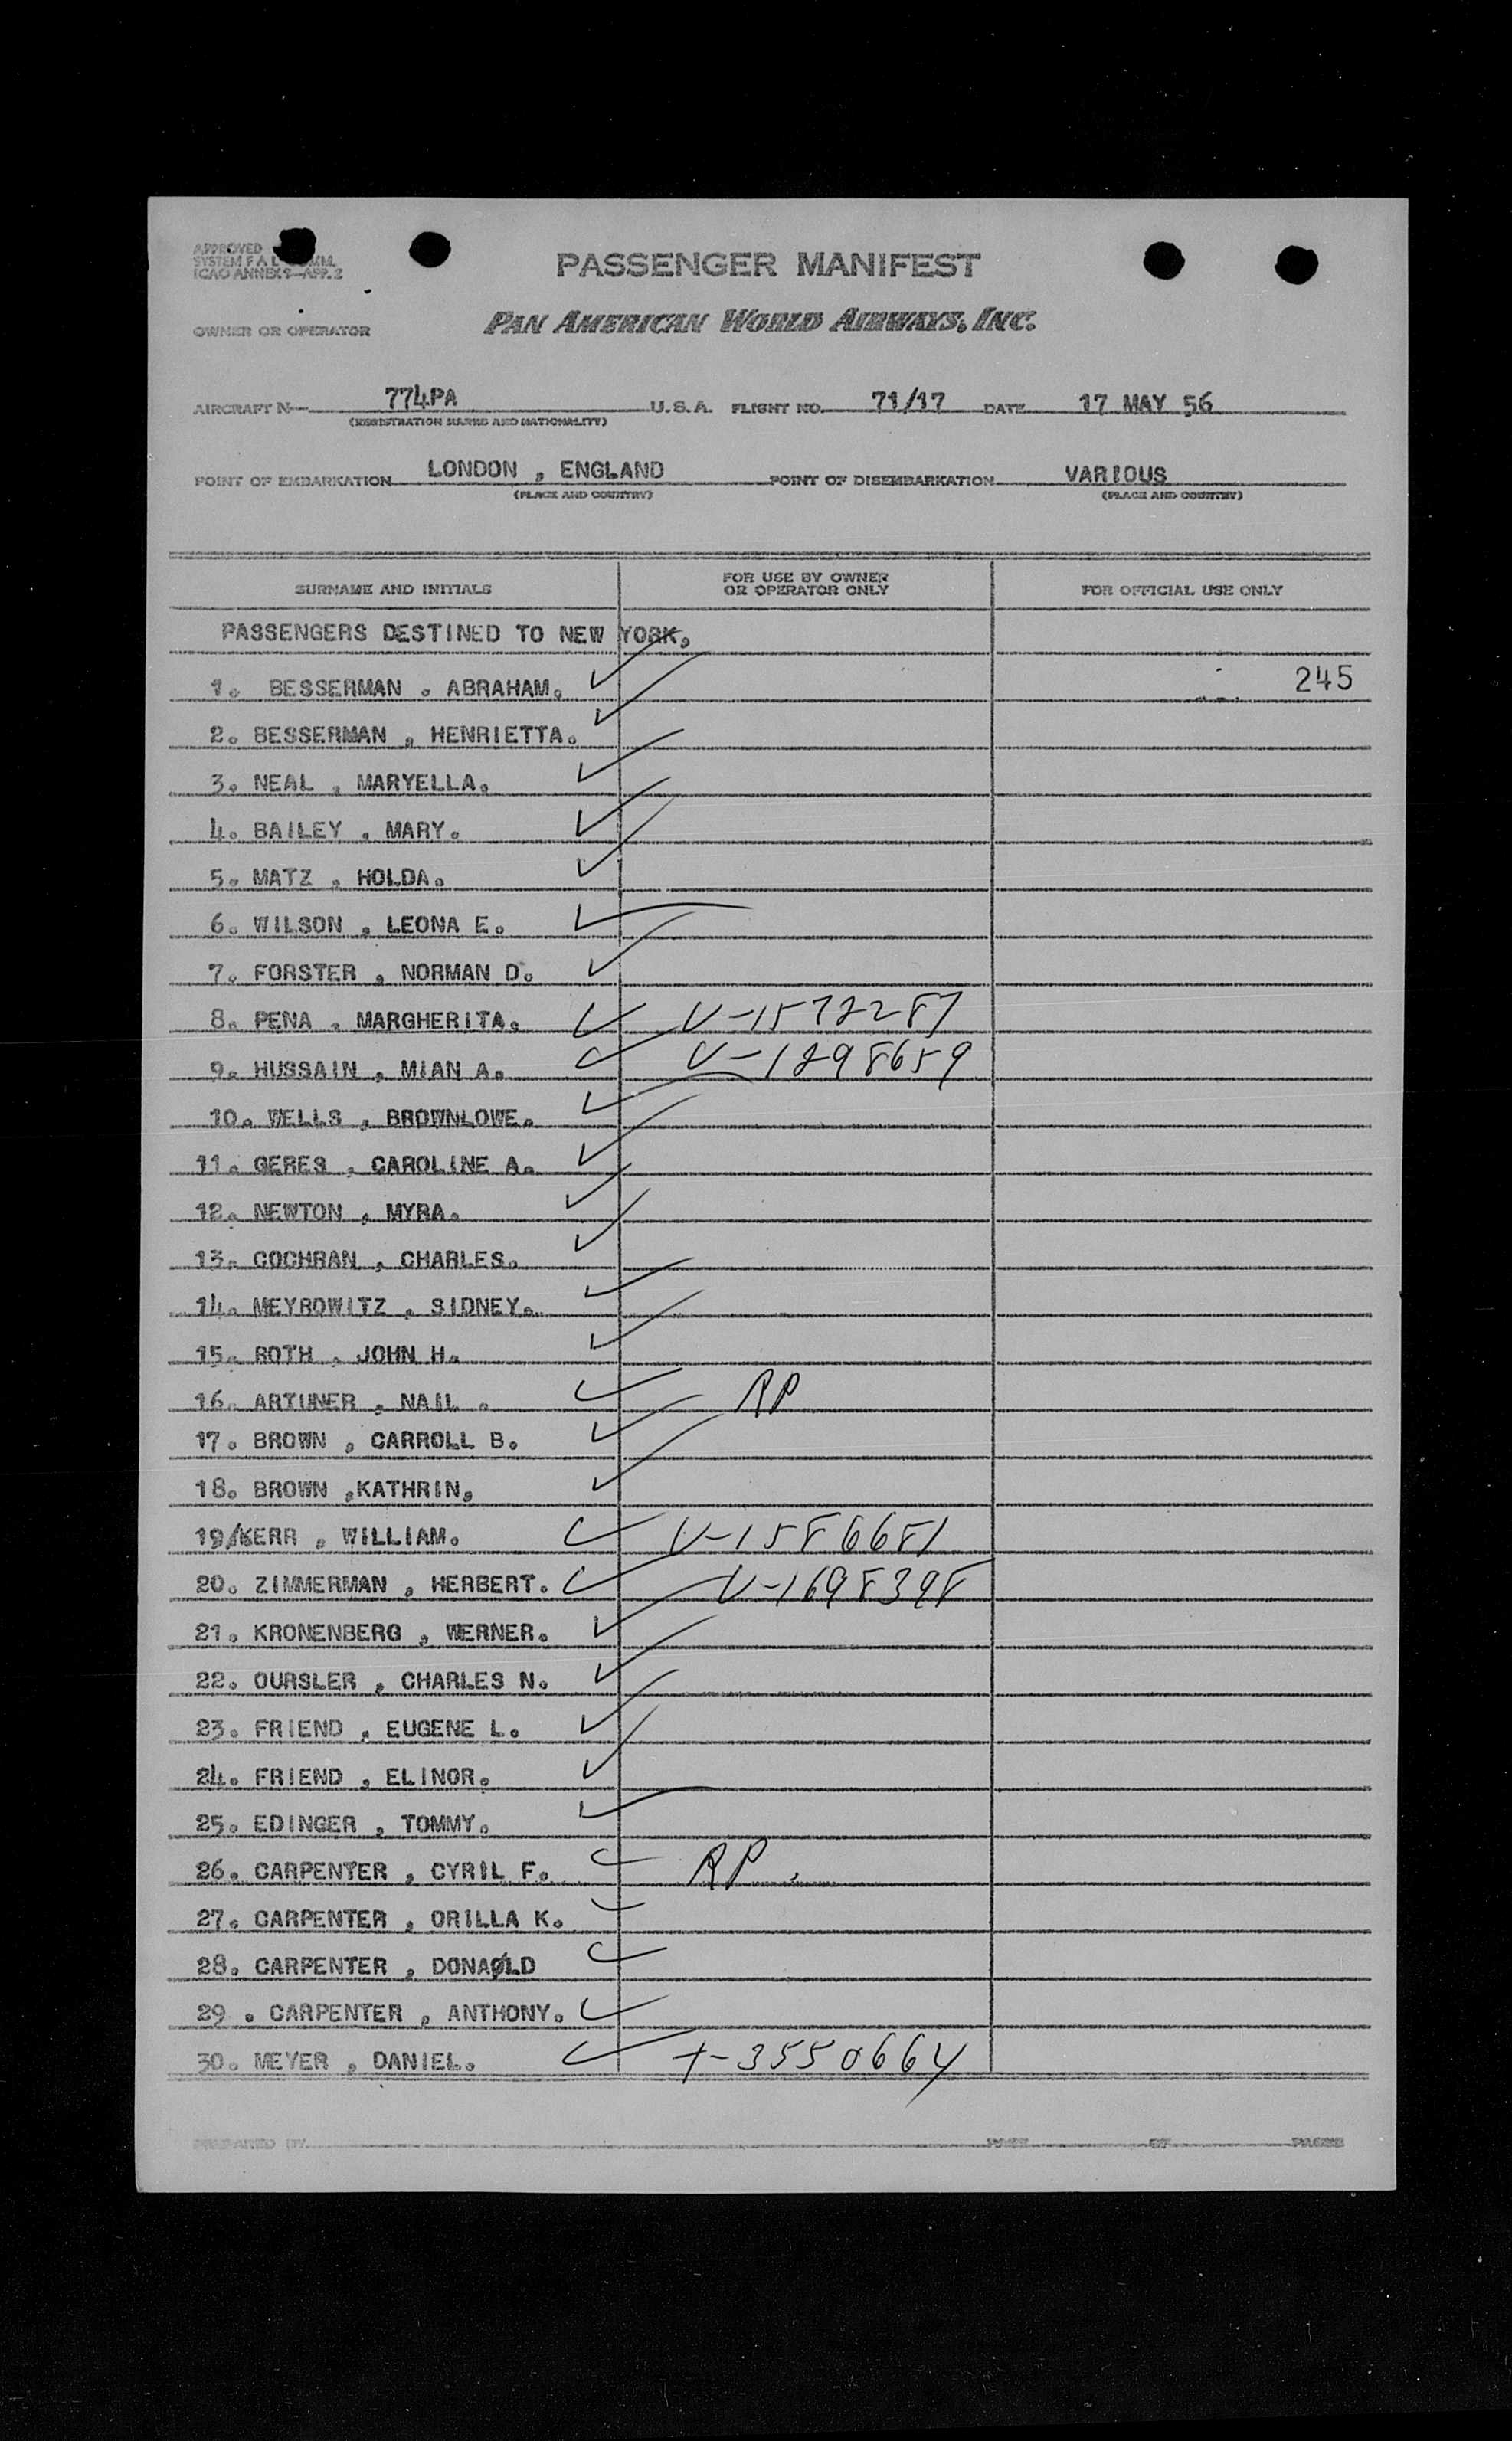 APPROVED
SYSTEM F A L COMM.
ICAO ANNEX 9—APP. 2
PASSENGER MANIFEST
OWNER OR OPERATOR
PAN AMERICAN WORLD AIRWAYS, INC.
AIRCRAFT N— 774PA U.S.A. FLIGHT NO. 71/17 DATE 17 MAY 56
(REGISTRATION MARKS AND NATIONALITY)
POINT OF EMBARKATION LONDON , ENGLAND POINT OF DISEMBARKATION VARIOUS
(PLACE AND COUNTRY) (PLACE AND COUNTRY)
SURNAME AND INITIALS FOR USE BY OWNER OR OPERATOR ONLY FOR OFFICIAL USE ONLY
PASSENGERS DESTINED TO NEW YORK.
1. BESSERMAN . ABRAHAM. 245
2. BESSERMAN , HENRIETTA.
3. NEAL , MARYELLA.
4. BAILEY , MARY.
5. MATZ , HOLDA.
6. WILSON , LEONA E.
7. FORSTER , NORMAN D.
8. PENA , MARGHERITA. V-1572287
9. HUSSAIN , MIAN A. V-1298659
10. WELLS , BROWNLOWE.
11. GERES , CAROLINE A.
12. NEWTON , MYRA.
13. COCHRAN , CHARLES.
14. MEYROWITZ , SIDNEY.
15. ROTH , JOHN H.
16. ARTUNER , NAIL . RP
17. BROWN , CARROLL B.
18. BROWN ,KATHRIN,
19/KERR , WILLIAM. V-1586681
20. ZIMMERMAN , HERBERT. V-1698398
21. KRONENBERG , WERNER.
22. OURSLER , CHARLES N.
23. FRIEND , EUGENE L.
24. FRIEND , ELINOR.
25. EDINGER , TOMMY.
26. CARPENTER , CYRIL F. RP
27. CARPENTER , ORILLA K.
28. CARPENTER , DONAØLD
29 . CARPENTER , ANTHONY.
30. MEYER , DANIEL. T-3550664
PREPARED BY PAGE OF PAGES